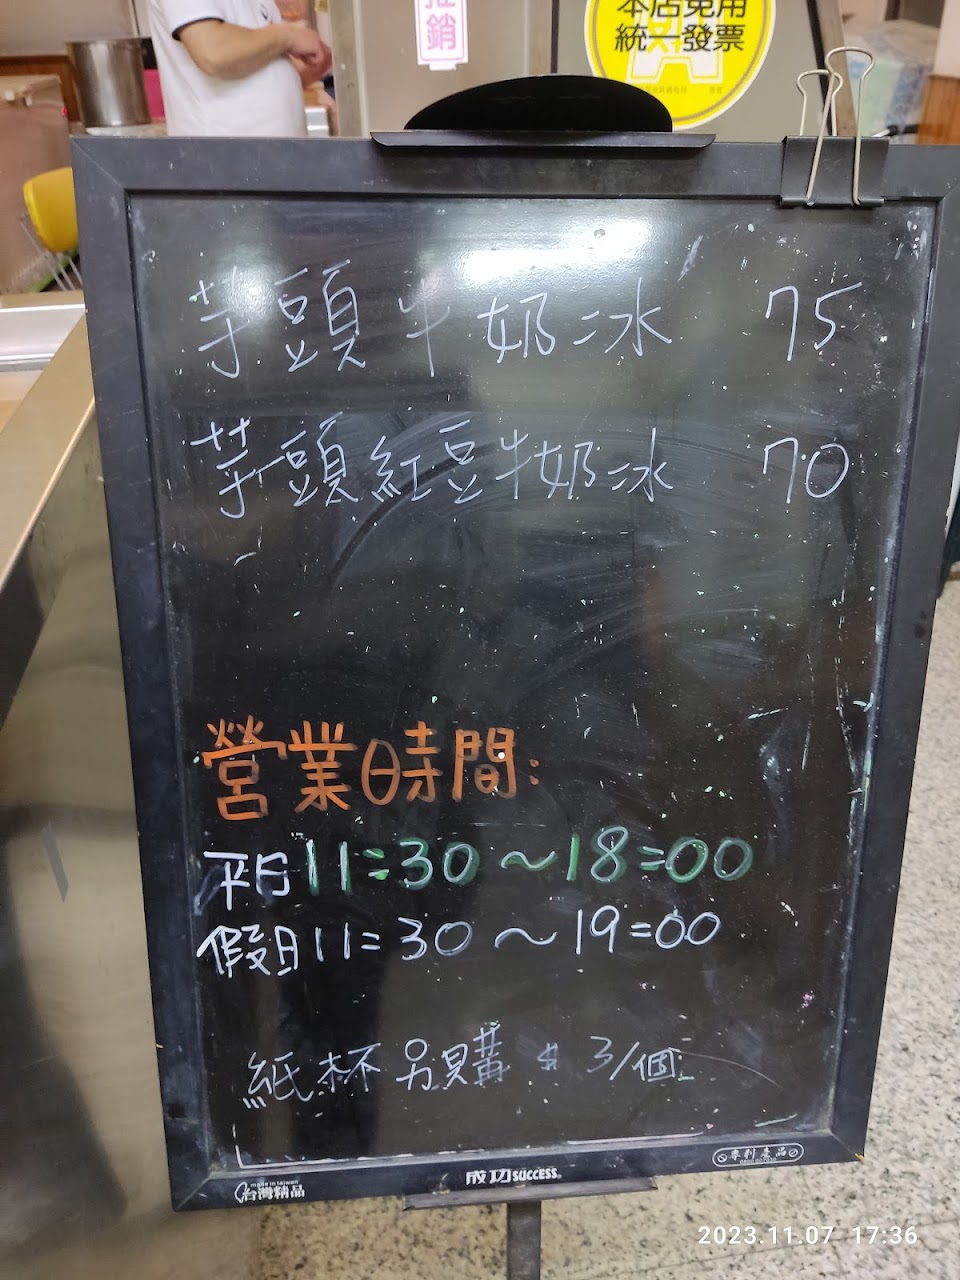 推銷
本店免用
統一發票
芋頭牛奶冰 75
芋頭紅豆牛奶冰 70
營業時間:
平日11:30～18:00
假日11:30～19:00
紙杯另購 $ 3/個
專利產品
made in taiwan
台灣精品
成功 success
2023.11.07 17:36